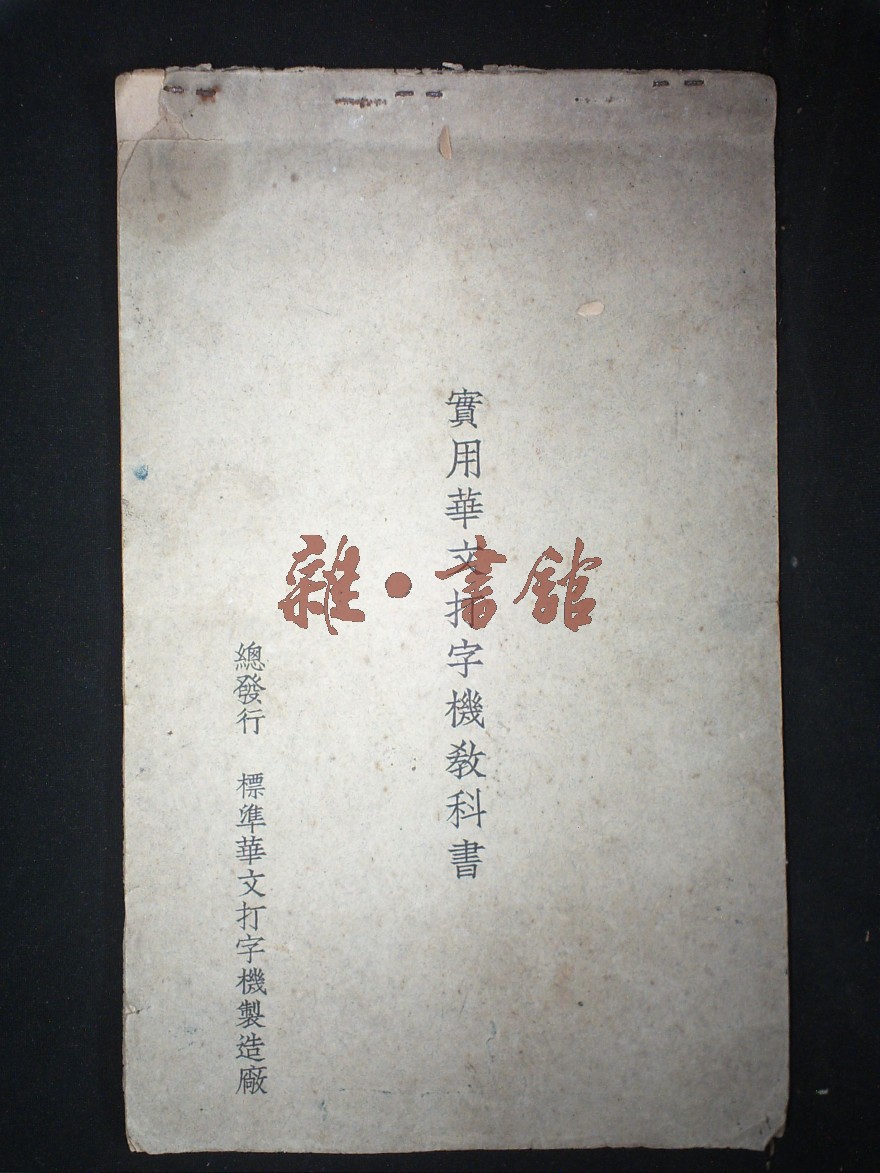 實用華文打字機教科書
總發行 標準華文打字機製造廠
雜·書館